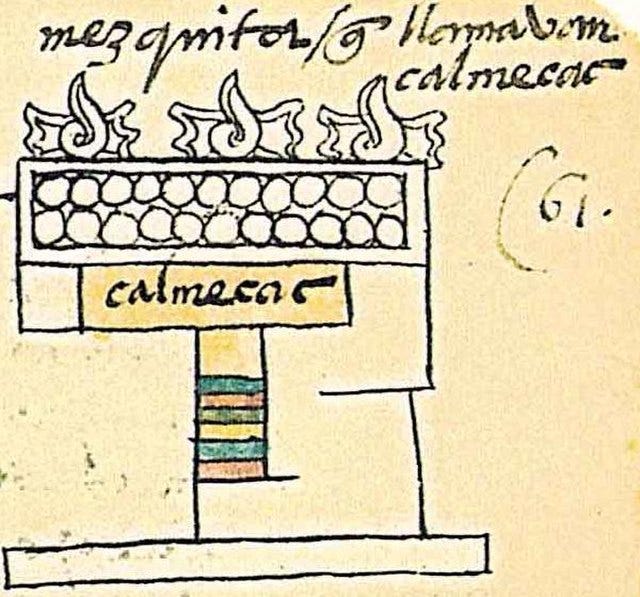 mezquita / q̃ llamavan.
calmecac
61.
calmecac